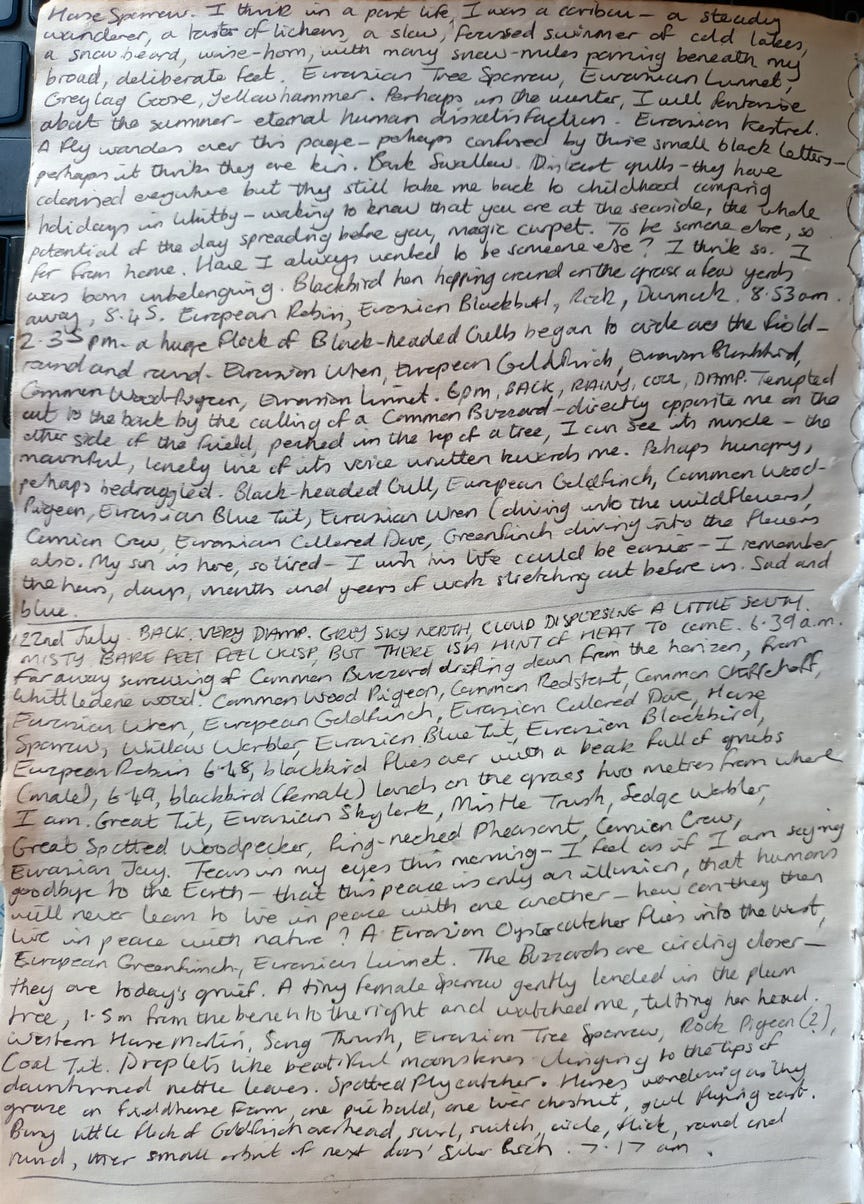 House Sparrow. I think in a past life, I was a caribou – a steady
wanderer, a taster of lichens, a slow, focused swimmer of cold lakes,
a snow beard, wise-horn, with many snow-miles passing beneath my
broad, deliberate feet. Eurasian Tree Sparrow, Eurasian Linnet,
Greylag Goose, Yellowhammer. Perhaps in the winter, I will fantasise
about the summer – eternal human dissatisfaction. Eurasian Kestrel.
A fly wanders over this page – perhaps confused by these small black letters –
perhaps it thinks they are kin. Bank Swallow. Distant gulls – they have
colonised everywhere but they still take me back to childhood camping
holidays in Whitby – waking to know that you are at the seaside, the whole
potential of the day spreading before you, magic carpet. To be someone else, so
far from home. Have I always wanted to be someone else? I think so. I
was born unbelonging. Blackbird hen hopping around on the grass a few yards
away, 8.45. European Robin, Eurasian Blackbird, Rook, Dunnock. 8.53am.
2.35pm – a huge flock of Black-headed Gulls began to circle over the field –
round and round. Eurasian Wren, European Goldfinch, Eurasian Blackbird,
Common Wood-Pigeon, Eurasian Linnet. 6pm, BACK, RAINY, COOL, DAMP. Tempted
out to the back by the calling of a Common Buzzard – directly opposite me on the
other side of the field, perched in the top of a tree, I can see its muscle – the
mournful, lonely line of its voice written towards me. Perhaps hungry,
perhaps bedraggled. Black-headed Gull, European Goldfinch, Common Wood-
Pigeon, Eurasian Blue Tit, Eurasian Wren (diving into the wildflowers),
Carrion Crow, Eurasian Collared Dove, Greenfinch diving into the flowers
also. My son is here, so tired – I wish his life could be easier – I remember
the hours, days, months and years of work stretching out before us. Sad and
blue.
22nd July. BACK. VERY DAMP. GREY SKY NORTH, CLOUD DISPERSING A LITTLE SOUTH.
MISTY BARE FEET FEEL CRISP, BUT THERE IS A HINT OF HEAT TO COME. 6.39a.m.
Far away sorrowing of Common Buzzard drifting down from the horizon, from
Whittledene wood. Common Wood Pigeon, Common Redstart, Common Chiffchaff,
Eurasian Wren, European Goldfinch, Eurasian Collared Dove, House
Sparrow, Willow Warbler, Eurasian Blue Tit, Eurasian Blackbird,
European Robin 6.48, blackbird flies over with a beak full of grubs
(male), 6.49, blackbird (female) lands on the grass two metres from where
I am. Great Tit, Eurasian Skylark, Mistle Trush, Sedge Warbler,
Great Spotted Woodpecker, Ring-necked Pheasant, Carrion Crow,
Eurasian Jay. Tears in my eyes this morning – I feel as if I am saying
goodbye to the Earth – that this peace is only an illusion, that humans
will never learn to live in peace with one another – how can they then
live in peace with nature? A Eurasian Oystercatcher flies into the west,
European Greenfinch, Eurasian Linnet. The Buzzards are circling closer –
they are today's grief. A tiny female Sparrow gently landed in the plum
tree, 1.5m from the bench to the right and watched me, tilting her head.
Western House Martin, Song Thrush, Eurasian Tree Sparrow, Rock Pigeon (?),
Coal Tit. Droplets like beautiful moonstones clinging to the tips of
downturned nettle leaves. Spotted Flycatcher. Horses wandering as they
graze on Fieldhouse Farm, one piebald, one liver chestnut, gull flying east.
Busy little flock of Goldfinch overhead, swirl, switch, circle, flick, round and
round, their small orbit of next doors' Silver Birch. 7.17 am.